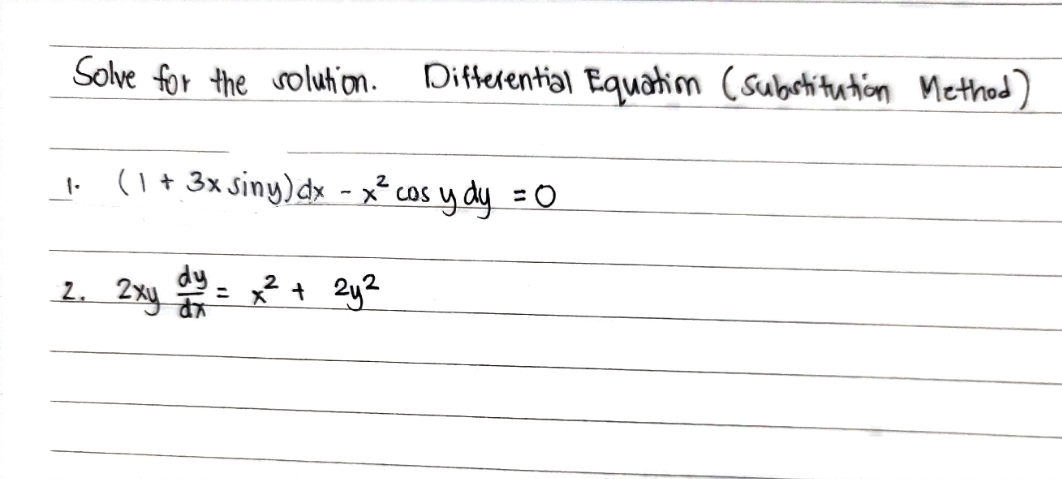 Solve for the solution. Differential Equation (Substitution Method)
1. (1 + 3x siny)dx - x² cos y dy = 0
2. 2xy dy/dx = x² + 2y²